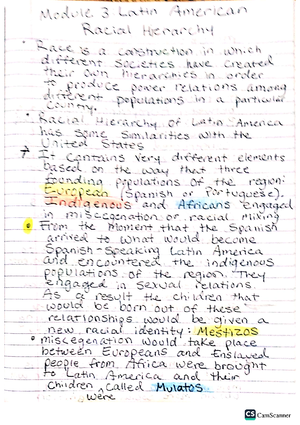 Module 3 Latin American
Racial Hierarchy
• Race is a construction in which
different societies have created
their own hierarchies in order
to produce power relations among
different populations in a particular
country.
• Racial Hierarchy of Latin America
has some similarities with the
United States
→ It contains very different elements
based on the way that three
founding populations of the region:
European (Spanish or Portuguese).
Indigenous and Africans engaged
in miscegenation or racial mixing
• From the moment that the Spanish
arrived to what would become
Spanish-Speaking Latin America
and encountered the indigenous
populations of the region. They
engaged in sexual relations
As a result the children that
would be born out of these
relationships would be given a
new racial identity: Mestizos
• miscegenation would take place
between Europeans and Enslaved
people from Africa were brought
to Latin America and their
Children called Mulatos
were
CS CamScanner